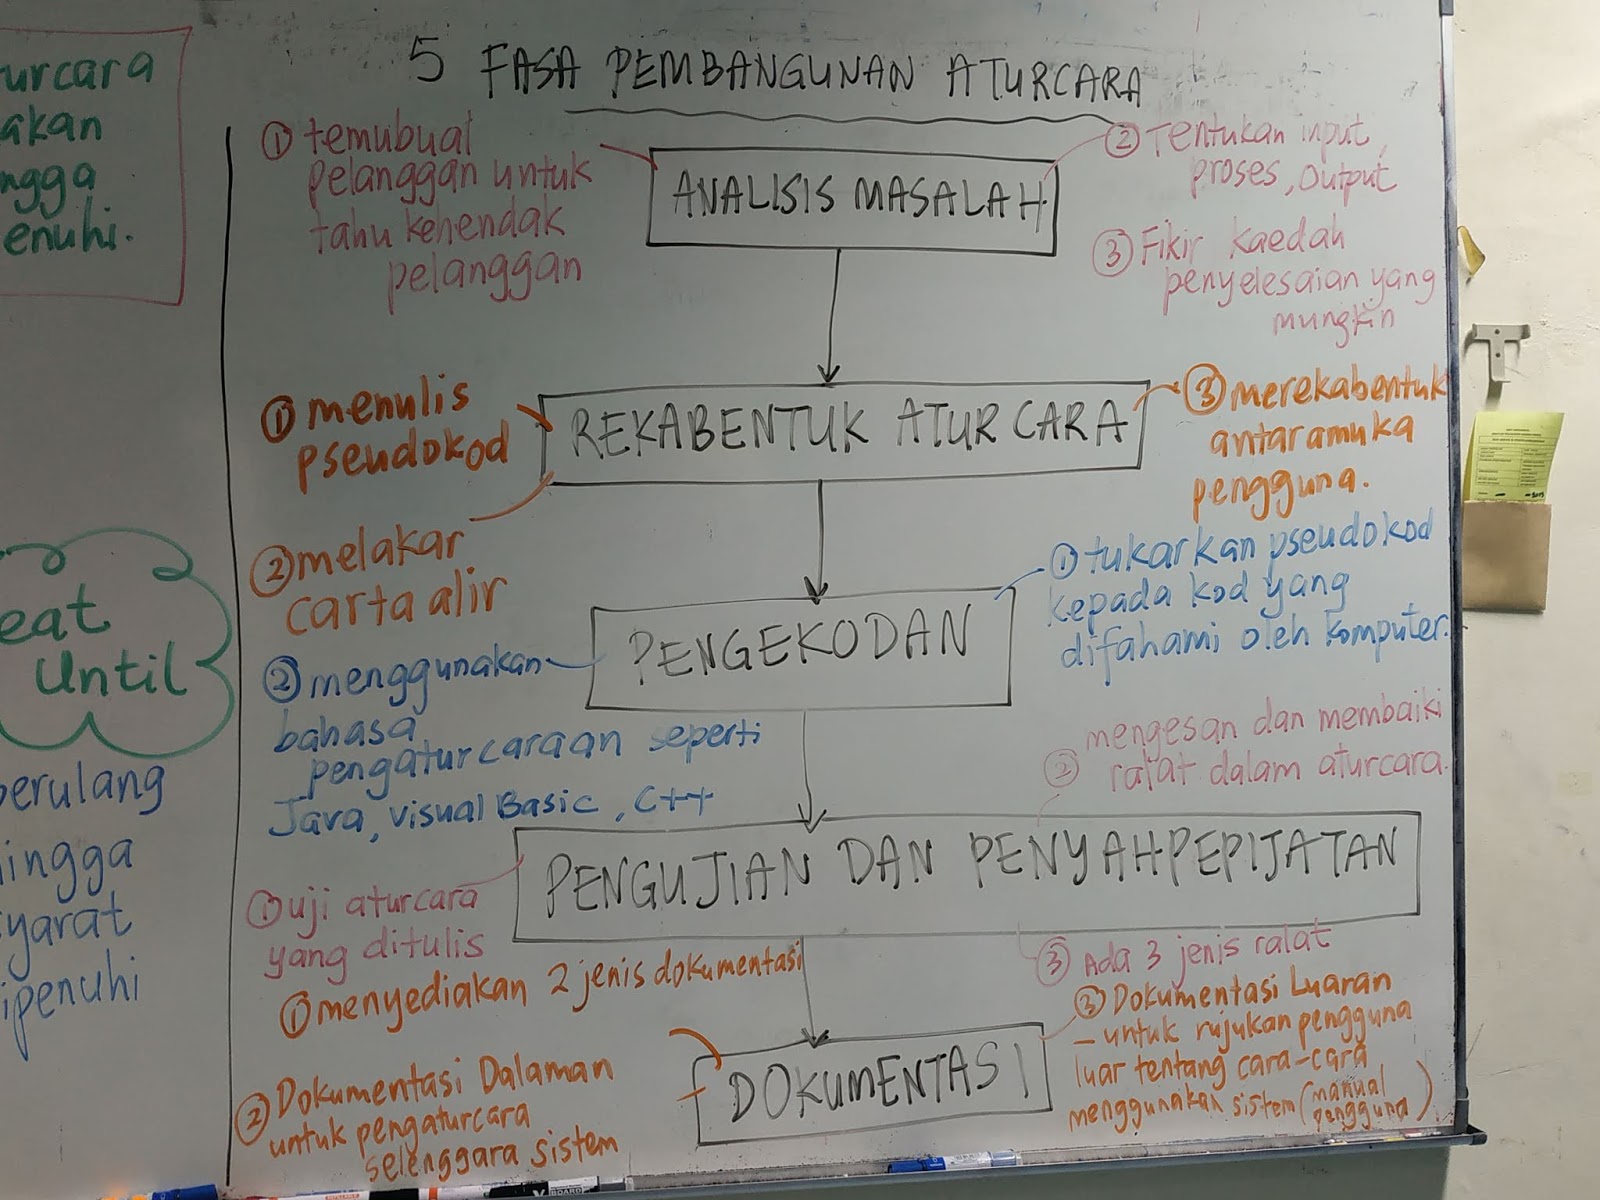 urcara
akan
ngga
enuhi.
eat
Until
berulang
ingga
yarat
ipenuhi
5 FASA PEMBANGUNAN ATURCARA
① temubual
pelanggan untuk
tahu kehendak
pelanggan
ANALISIS MASALAH
② Tentukan input,
proses, output
③ Fikir kaedah
penyelesaian yang
mungkin
① menulis
pseudokod
② melakar
carta alir
REKABENTUK ATURCARA
③ merekabentuk
antaramuka
pengguna.
PENGEKODAN
① tukarkan pseudokod
kepada kod yang
difahami oleh komputer.
② menggunakan
bahasa
pengaturcaraan seperti
Java, Visual Basic, C++
PENGUJIAN DAN PENYAHPEPIJATAN
① uji aturcara
yang ditulis
② mengesan dan membaiki
ralat dalam aturcara.
③ Ada 3 jenis ralat
DOKUMENTASI
① menyediakan 2 jenis dokumentasi
② Dokumentasi Dalaman
untuk pengaturcara
selenggara sistem
③ Dokumentasi Luaran
- untuk rujukan pengguna
luar tentang cara-cara
menggunakan sistem (manual
pengguna)